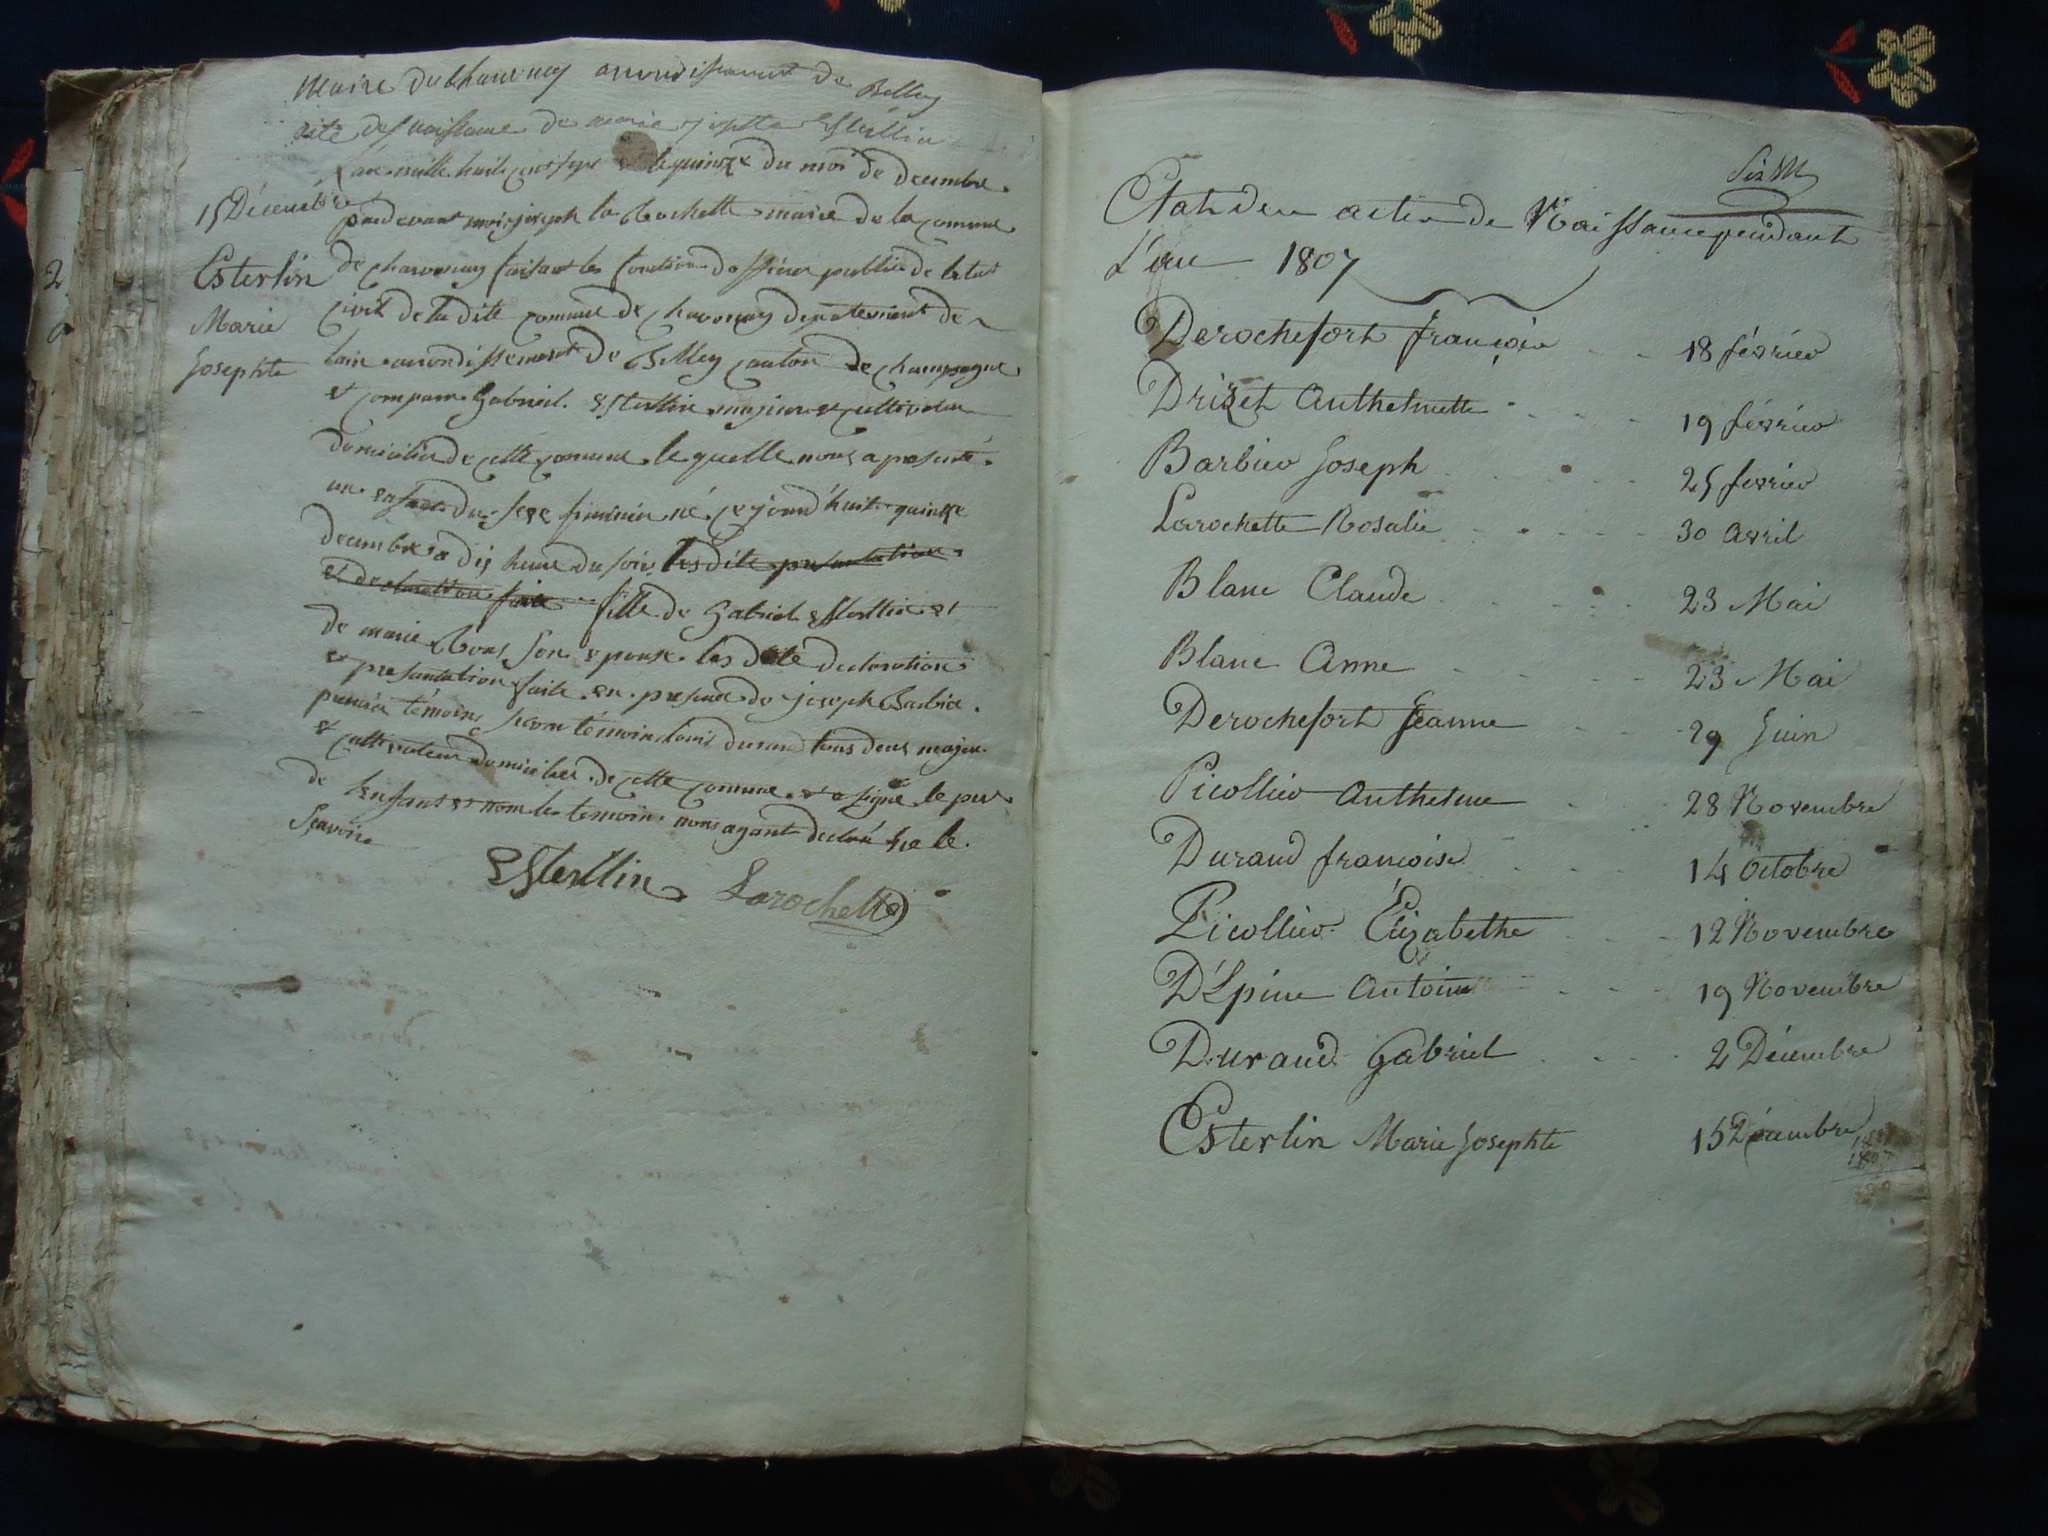 Maire de Chavornay arrondissement de Belley
acte de naissance de marie josepte Esterllin
L'an mille huit cent sept le quinze du moi de decembre
15 Décembre
pardevant moi joseph la Rochette maire de la commune
Esterlin
de chavornay faisant les fonction d'officier public de l'etat
Marie
civil de la dite comune de chavornay departement de
Josephte
lain arrondissement de Belley canton de champagne
et comparu Gabriel Esterllin majeur et cultivateur
domicilié de cette comune le quelle nous a presenté
un enfant du sexe feminin né ce jourd'huit quinze
decembre a dix heure du soir les dite presantation
et declaration faite fille de Gabriel Esterllin et
de marie Bous son epouse les dite declaration
et presantation faite en presence de joseph Barbier
premier témoin second témoin louis durand tous deux majeur
et cultivateur domicilier de cette comune et a signé le pere
de l'enfant et nom le temoin nous ayant declaré ne le
scavoir
ESterllin Larochette
Etat des actes de Naissance pendant
L'an 1807
Derochefort françoise 18 février
Drizet Anthelmette 19 février
Barbier Joseph 25 fevrier
Larochette Rosalie 30 Avril
Blanc Claude 23 Mai
Blanc Anne 23 Mai
Derochefort Jeanne 29 Juin
Picollier Anthelme 28 Novembre
Durand francoise 14 Octobre
Picollier Élizabethe 12 Novembre
D'Épine Antoine 19 Novembre
Durand Gabriel 2 Décembre
Esterlin Marie Josephte 15 Décembre
1807